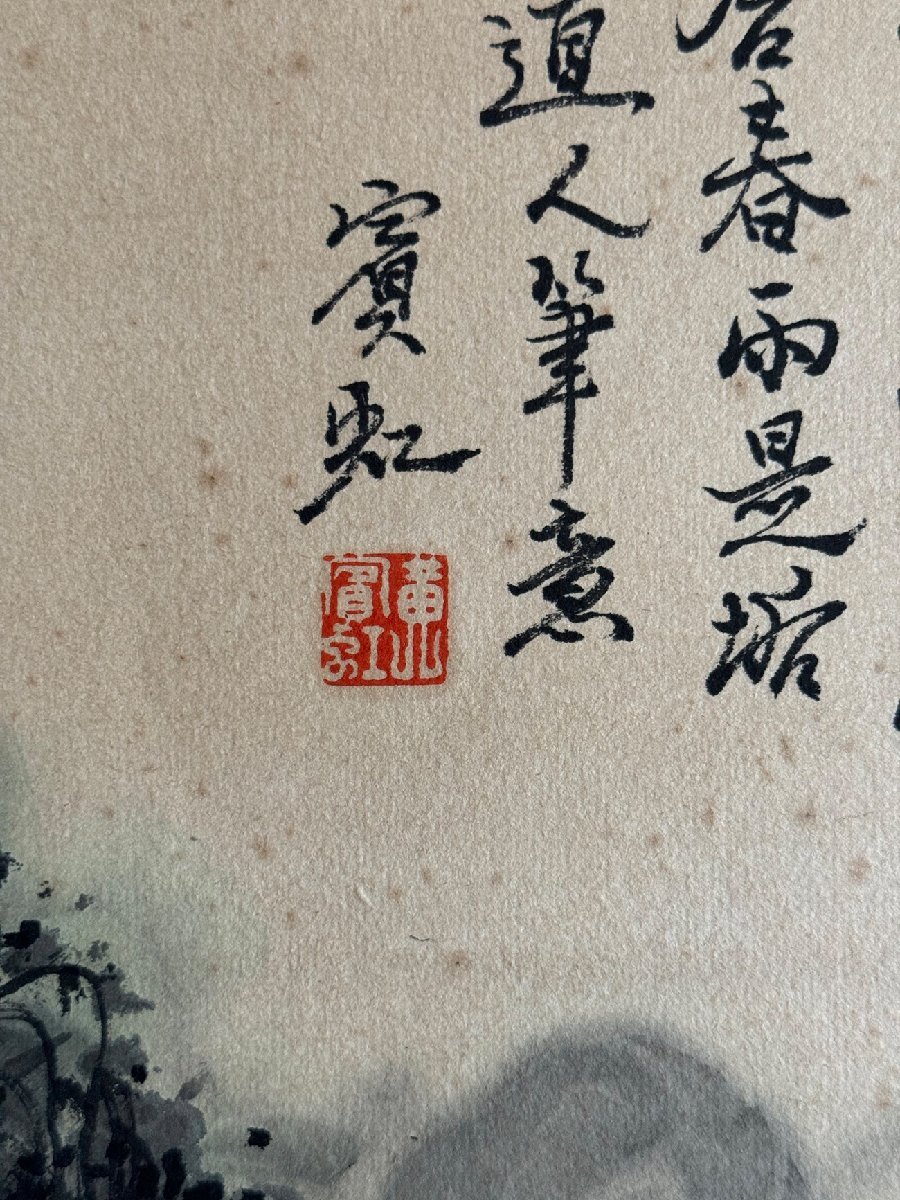 春雨是垢
道人筆意
賓虹
黃山賓虹